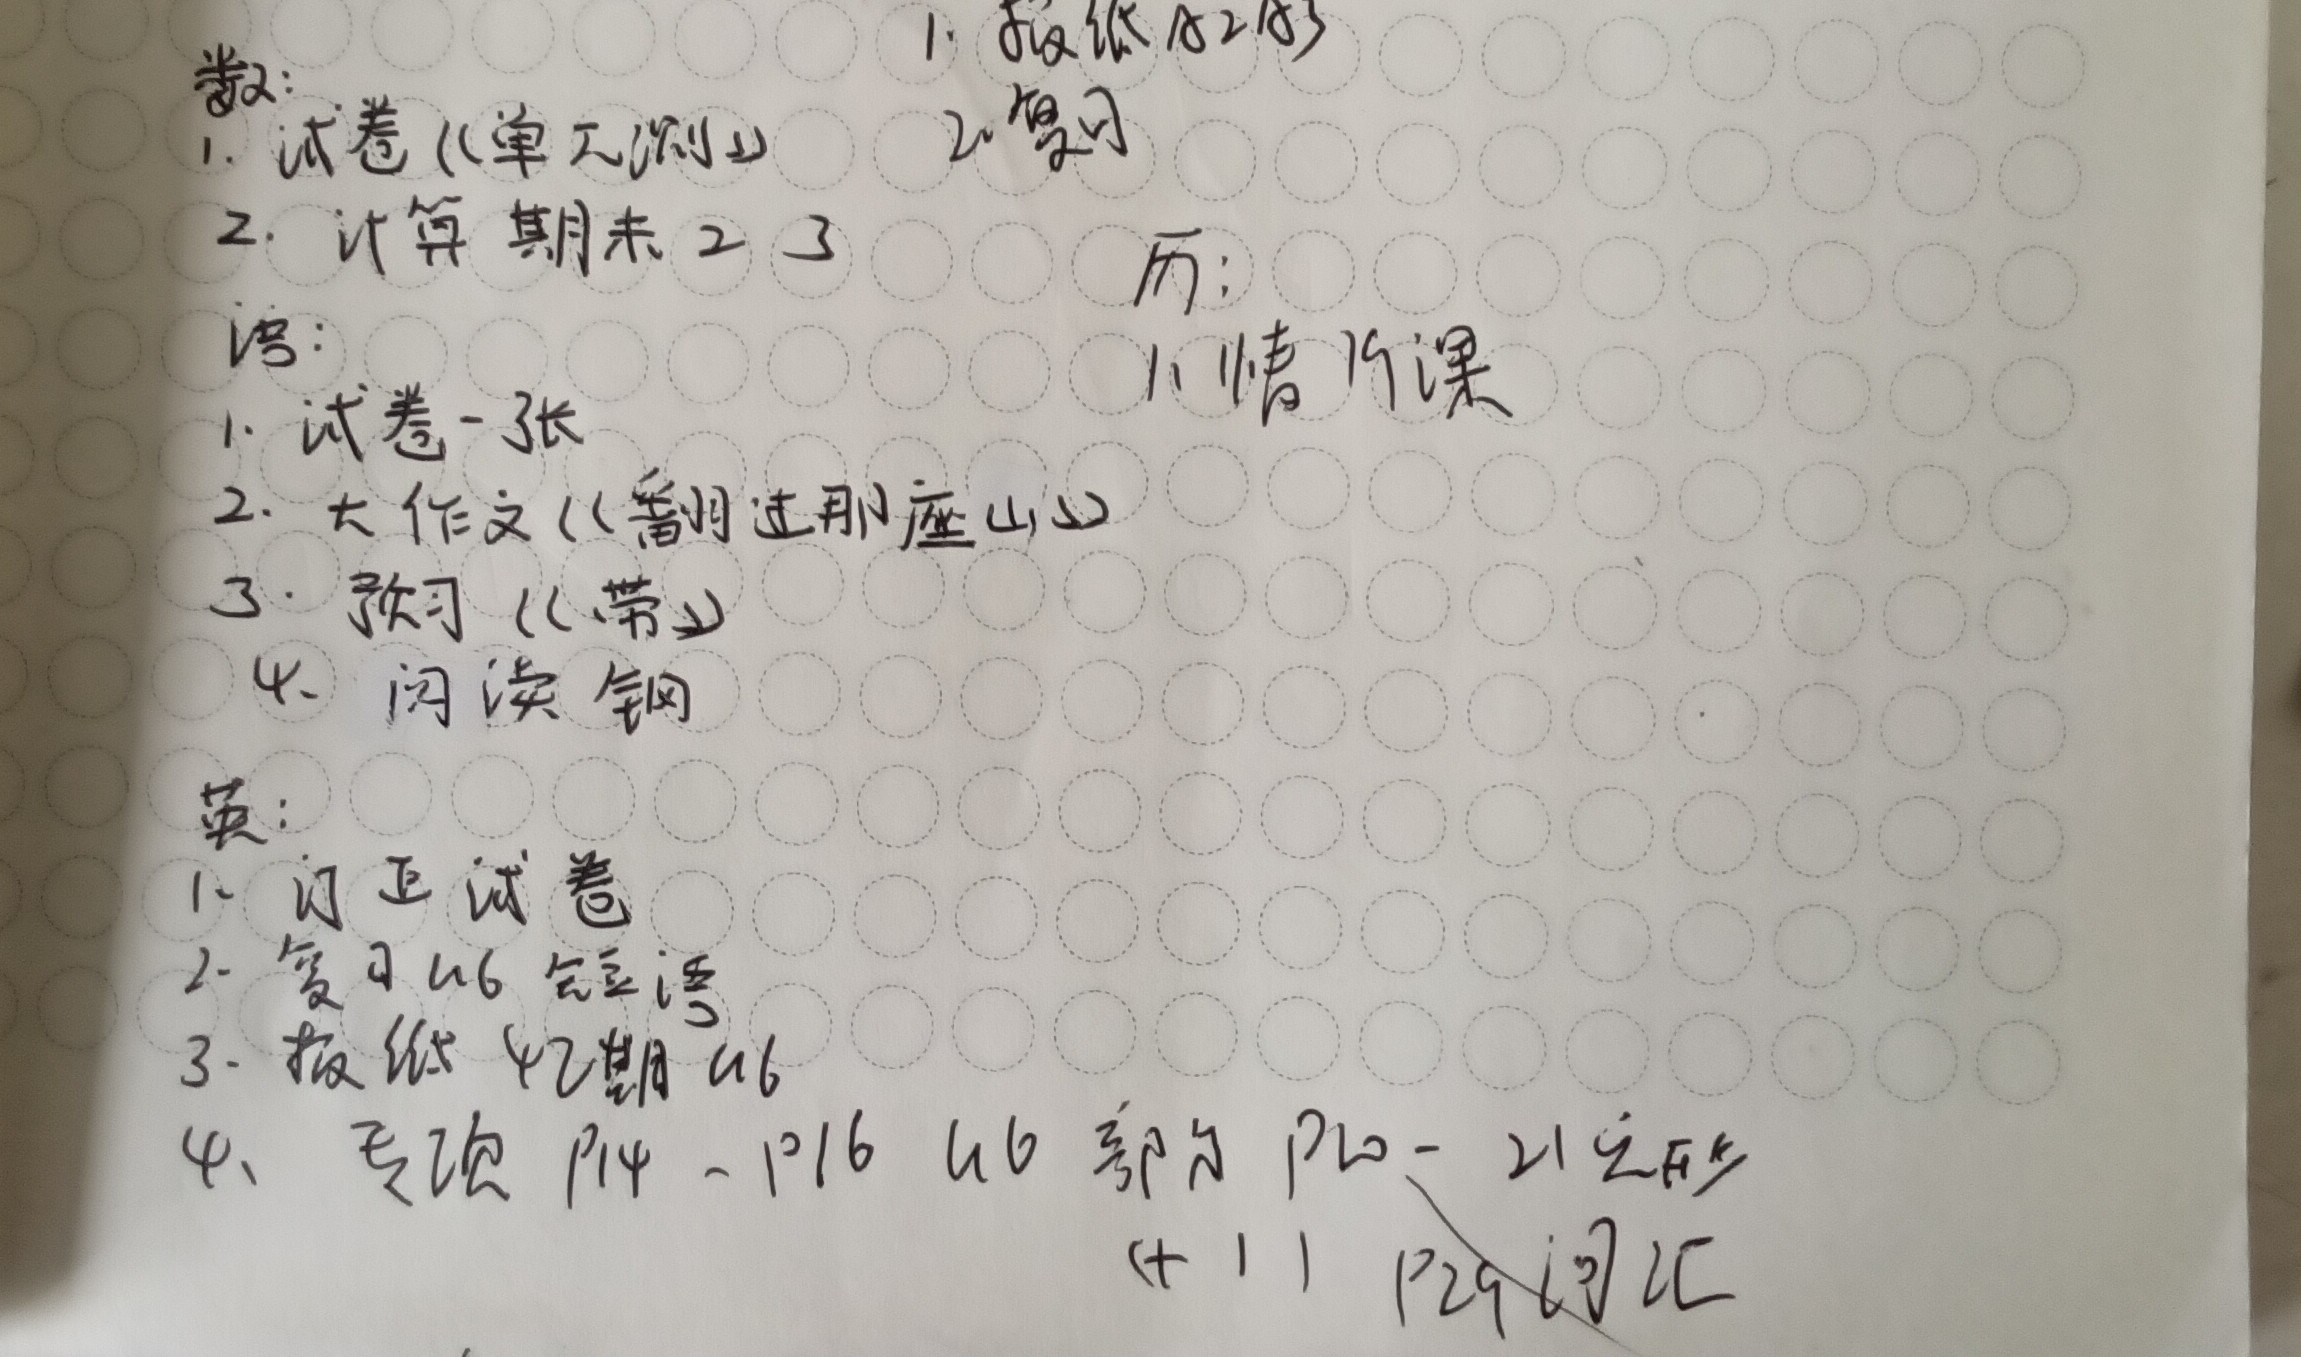 数:
1. 试卷《单元测》
2. 计算 期末 2 3
语:
1. 试卷一张
2. 大作文《翻过那座山》
3. 预习《带》
4、阅读 钢
英:
1. 订正试卷
2. 复习 U6 短语
3. 报纸 42期 U6
4、专项 P14 - P16 U6 部分 P20 - 21
P29 词汇
1. 报纸 A2A3
2. 复习
历:
1、情 19课